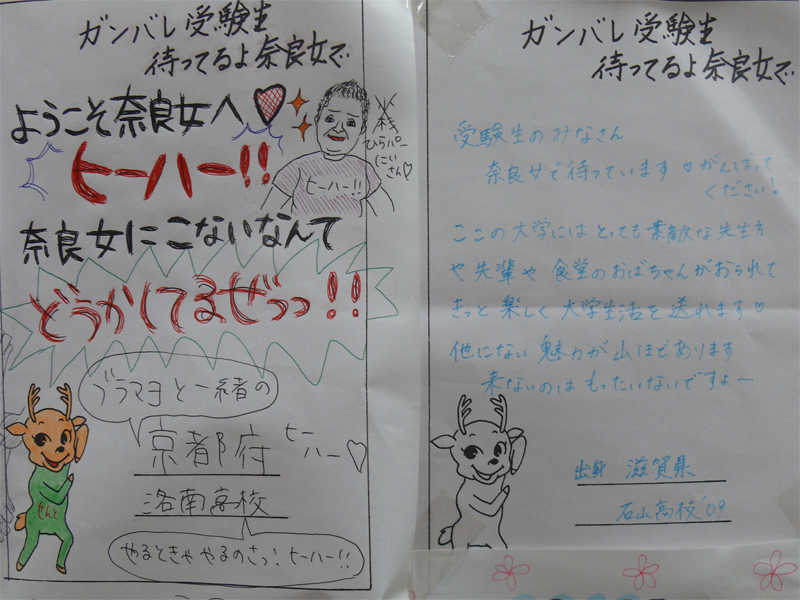 ガンバレ受験生
待ってるよ奈良女で
ようこそ奈良女へ♡
ヒーハー!!
※桟
ひらパー
にいさん♡
ヒーハー!!
奈良女にこないなんて
どうかしてるぜっっ!!
ブラマヨと一緒の
京都府
ヒーハー♡
洛南高校
やるときゃやるのさっ!ヒーハー!!
せんと
ガンバレ受験生
待ってるよ奈良女で
受験生のみなさん
奈良女で待っています♡がんばって
ください!
ここの大学にはとっても素敵な先生方
や先輩や食堂のおばちゃんがおられて
きっと楽しく大学生活を送れます♡
他にない魅力が山ほどあります
来ないのはもったいないですよー
出身 滋賀県
石山高校'09